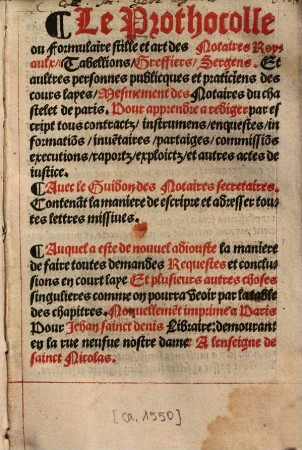 ¶Le Prothocolle
ou formulaire stille et art des Notaires Roy
aulx/Tabellions/Greffiers/Sergens. Et
aultres personnes publicques et praticiens des
cours layes/Mesmement des Notaires du cha
stelet de paris. Pour apprendre a rediger par es
cript tous contractz/ instrumens/enquestes/in
formatiõs / inuẽtaires /partaiges/ commissiõs
executions/raportz/exploictz/et autres actes de
iustice.
¶Auec le Guidon des Notaires secretaires.
Contenãt la maniere de escripre et adresser tou
tes lettres missiues.
¶Auquel a este de nouuel adiouste la maniere
de faire toutes demandes Requestes et conclu
sions en court laye Et plusieurs autres choses
singulieres comme on pourra veoir par la table
des chapitres. Nouuellement imprime a Paris
Pour Jehan sainct denis Libraire: demourant
ey la rue neufue nostre dame: A lenseigne de
sainct Nicolas.
[ca. 1550]